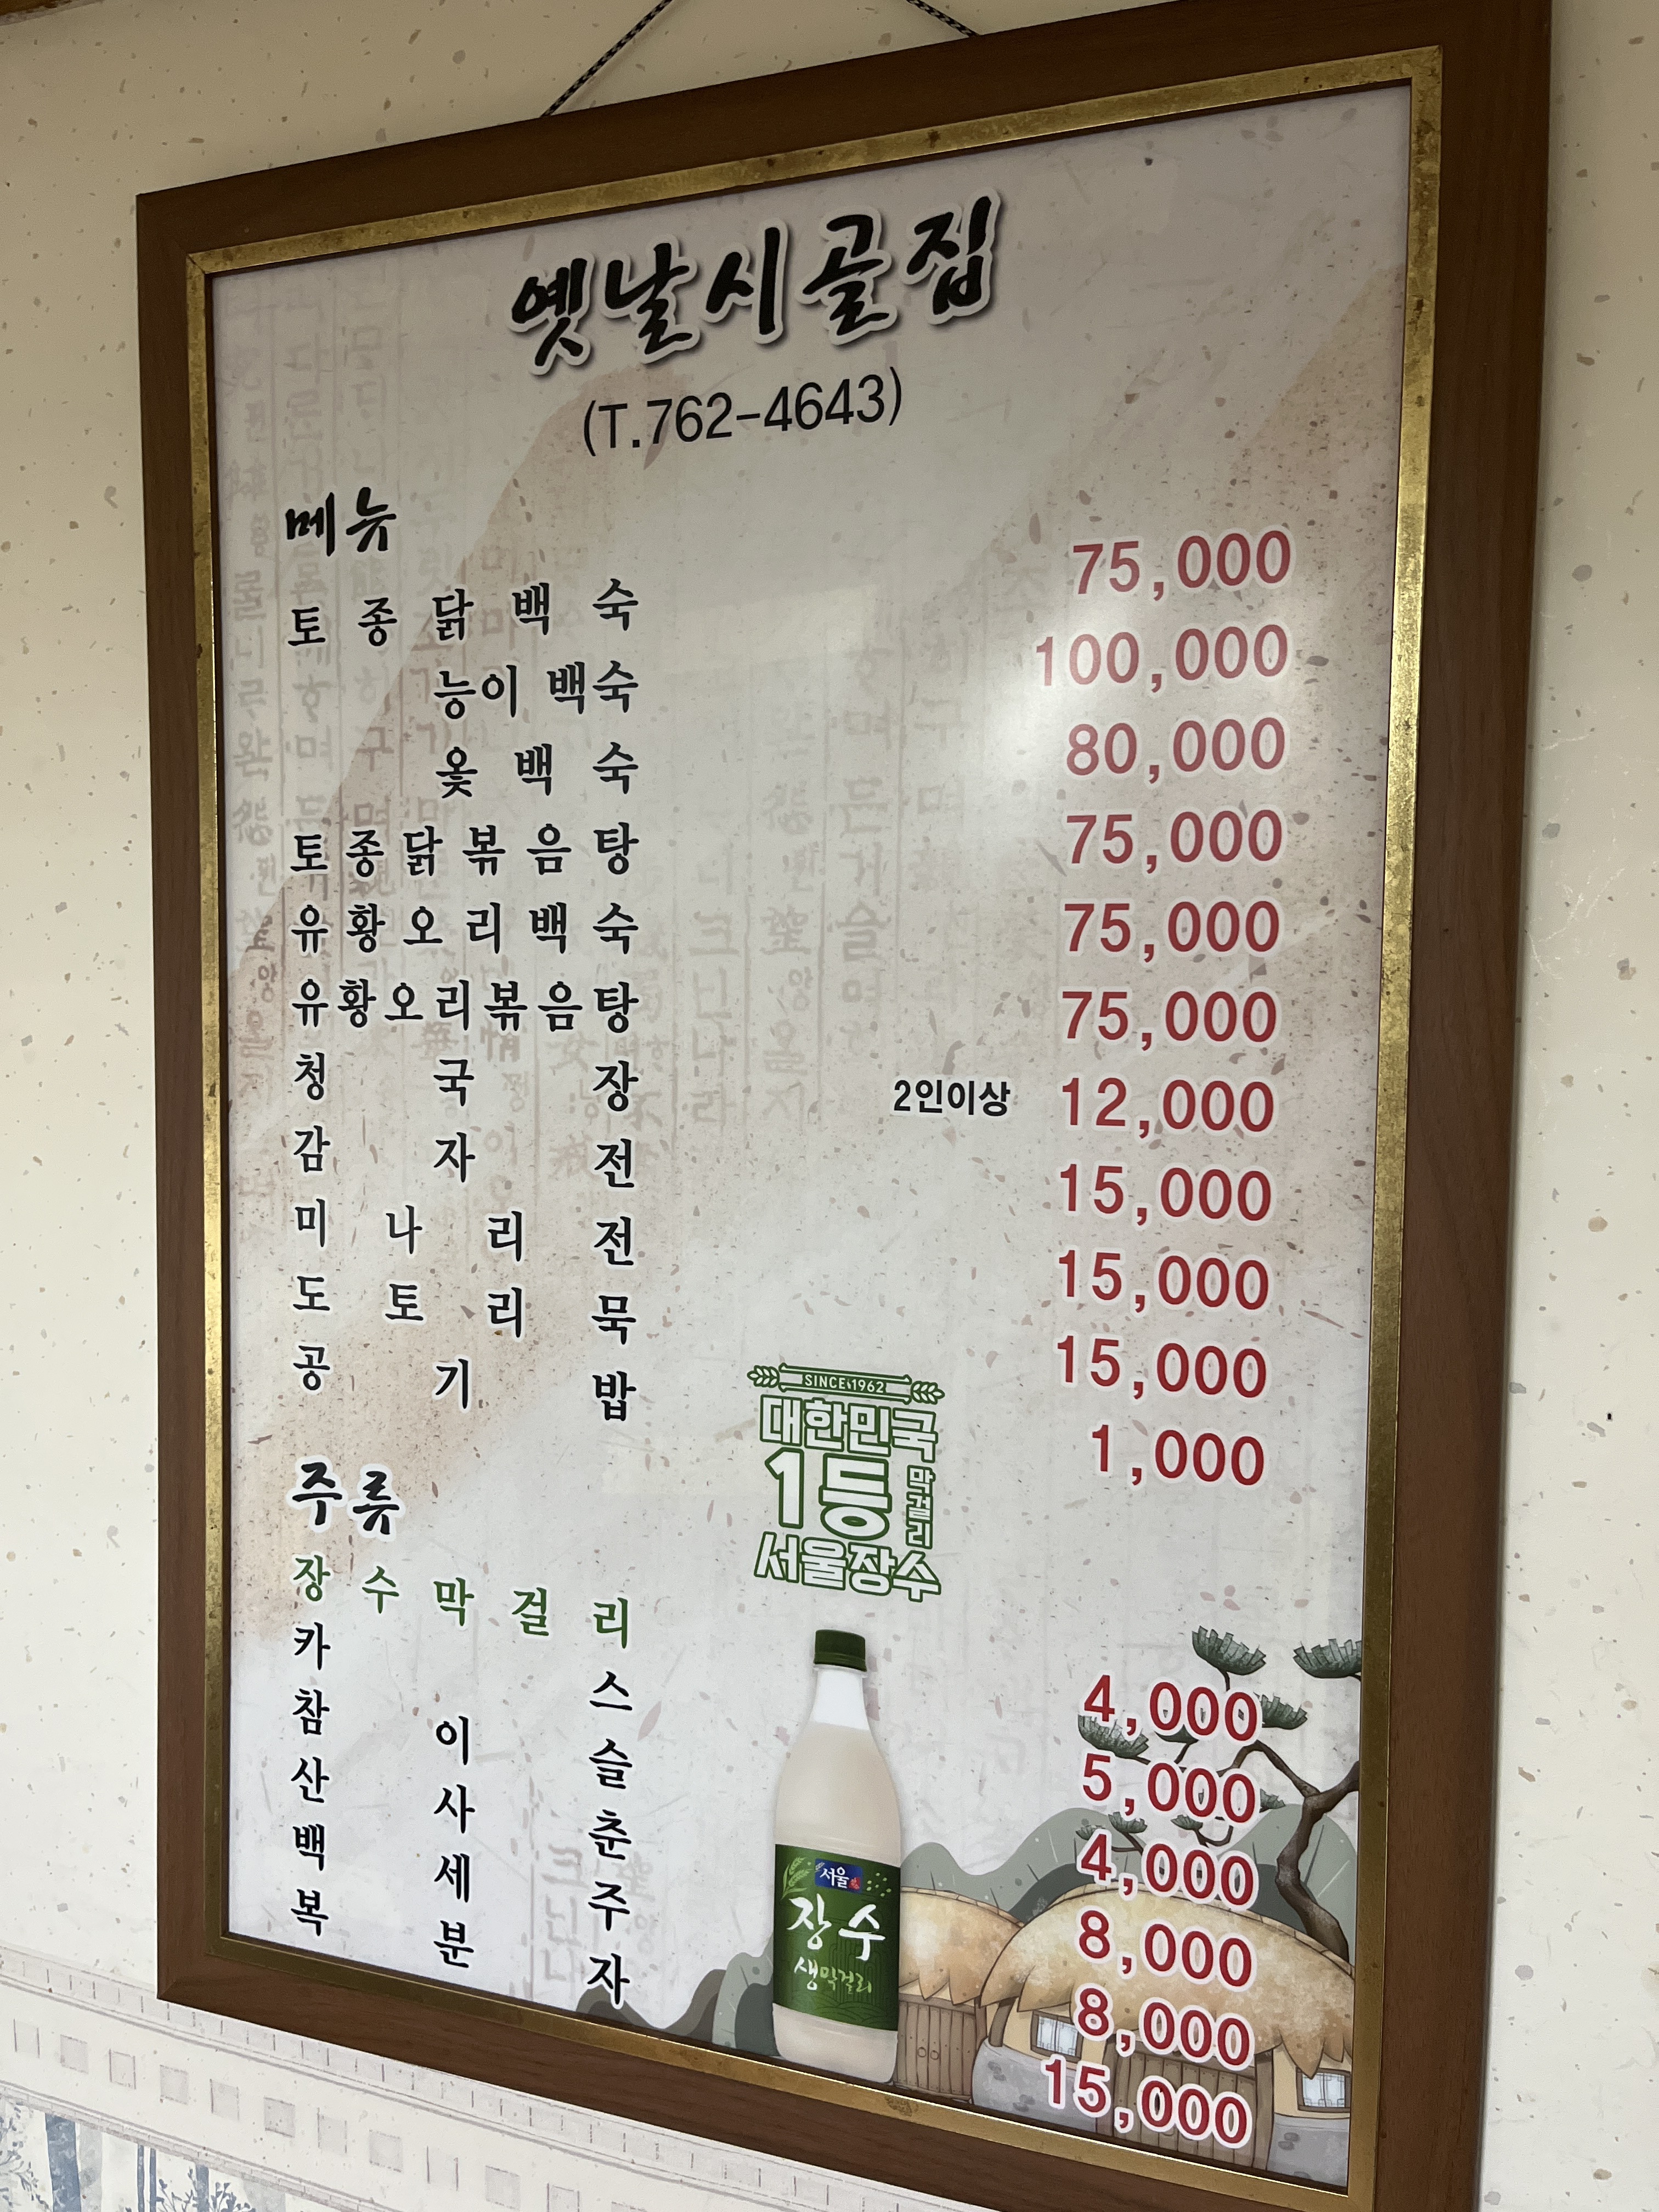 옛날시골집
(T.762-4643)
메뉴
토종닭백숙 75,000
능이백숙 100,000
옻백숙 80,000
토종닭볶음탕 75,000
유황오리백숙 75,000
유황오리볶음탕 75,000
청국장 2인이상 12,000
감자전 15,000
미나리전 15,000
도토리묵 15,000
공기밥 1,000
주류
장수막걸리 4,000
카스 5,000
참이슬 4,000
산사춘 8,000
백세주 8,000
복분자 15,000
SINCE 1962
대한민국
1등 막걸리
서울장수
서울
장수
생막걸리